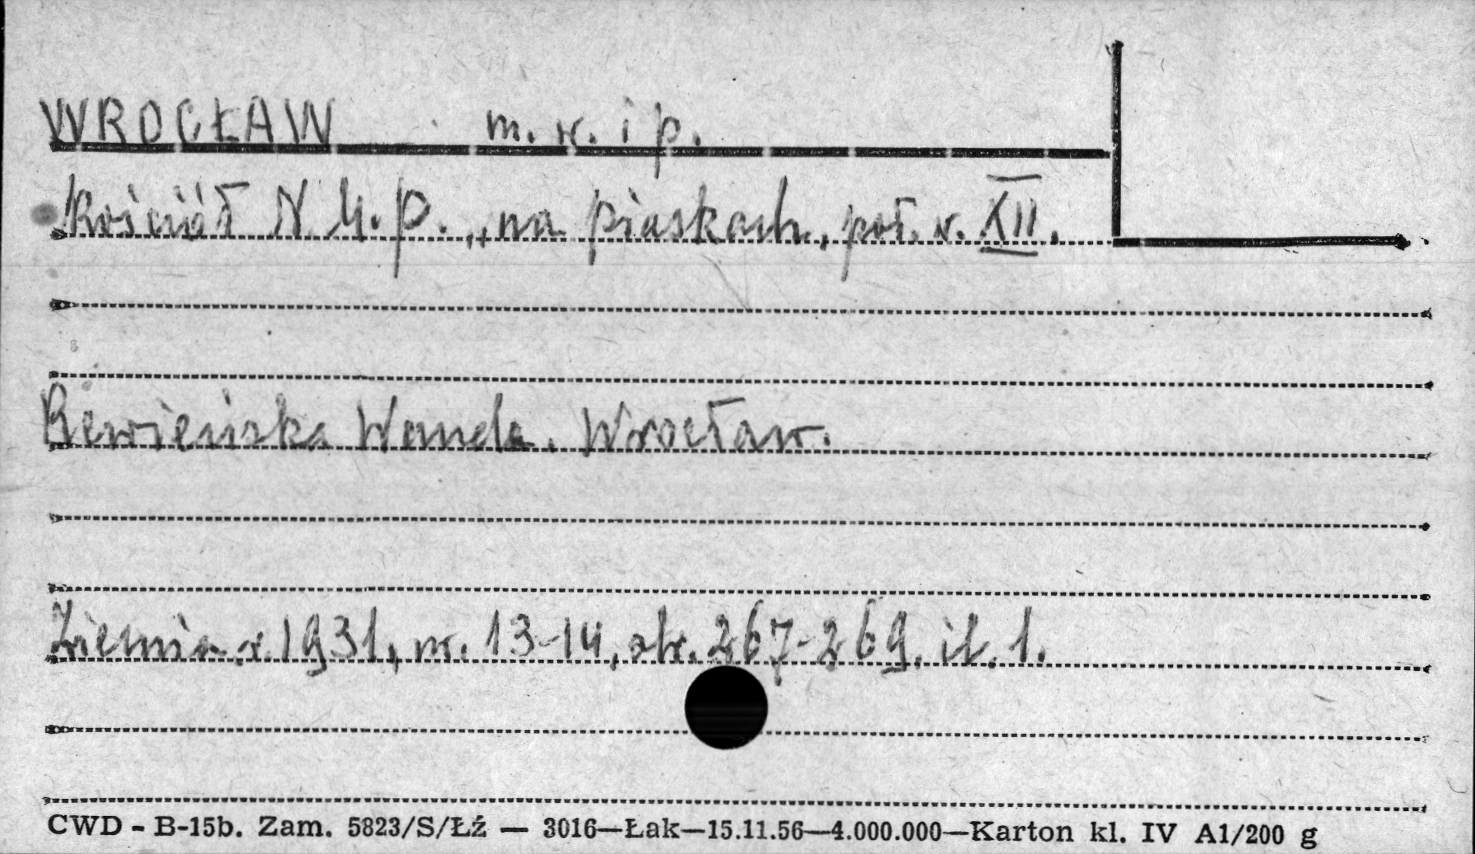 WROCŁAW m. w. i p.
Kościół N.M.P. „na piaskach, poł. w. XII.
Rewieńska Wanda. Wrocław.
Ziemia r. 1931, nr. 13-14, str. 267-269. il. 1.
CWD - B-15b. Zam. 5823/S/Łź — 3016—Łak—15.11.56—4.000.000—Karton kl. IV A1/200 g